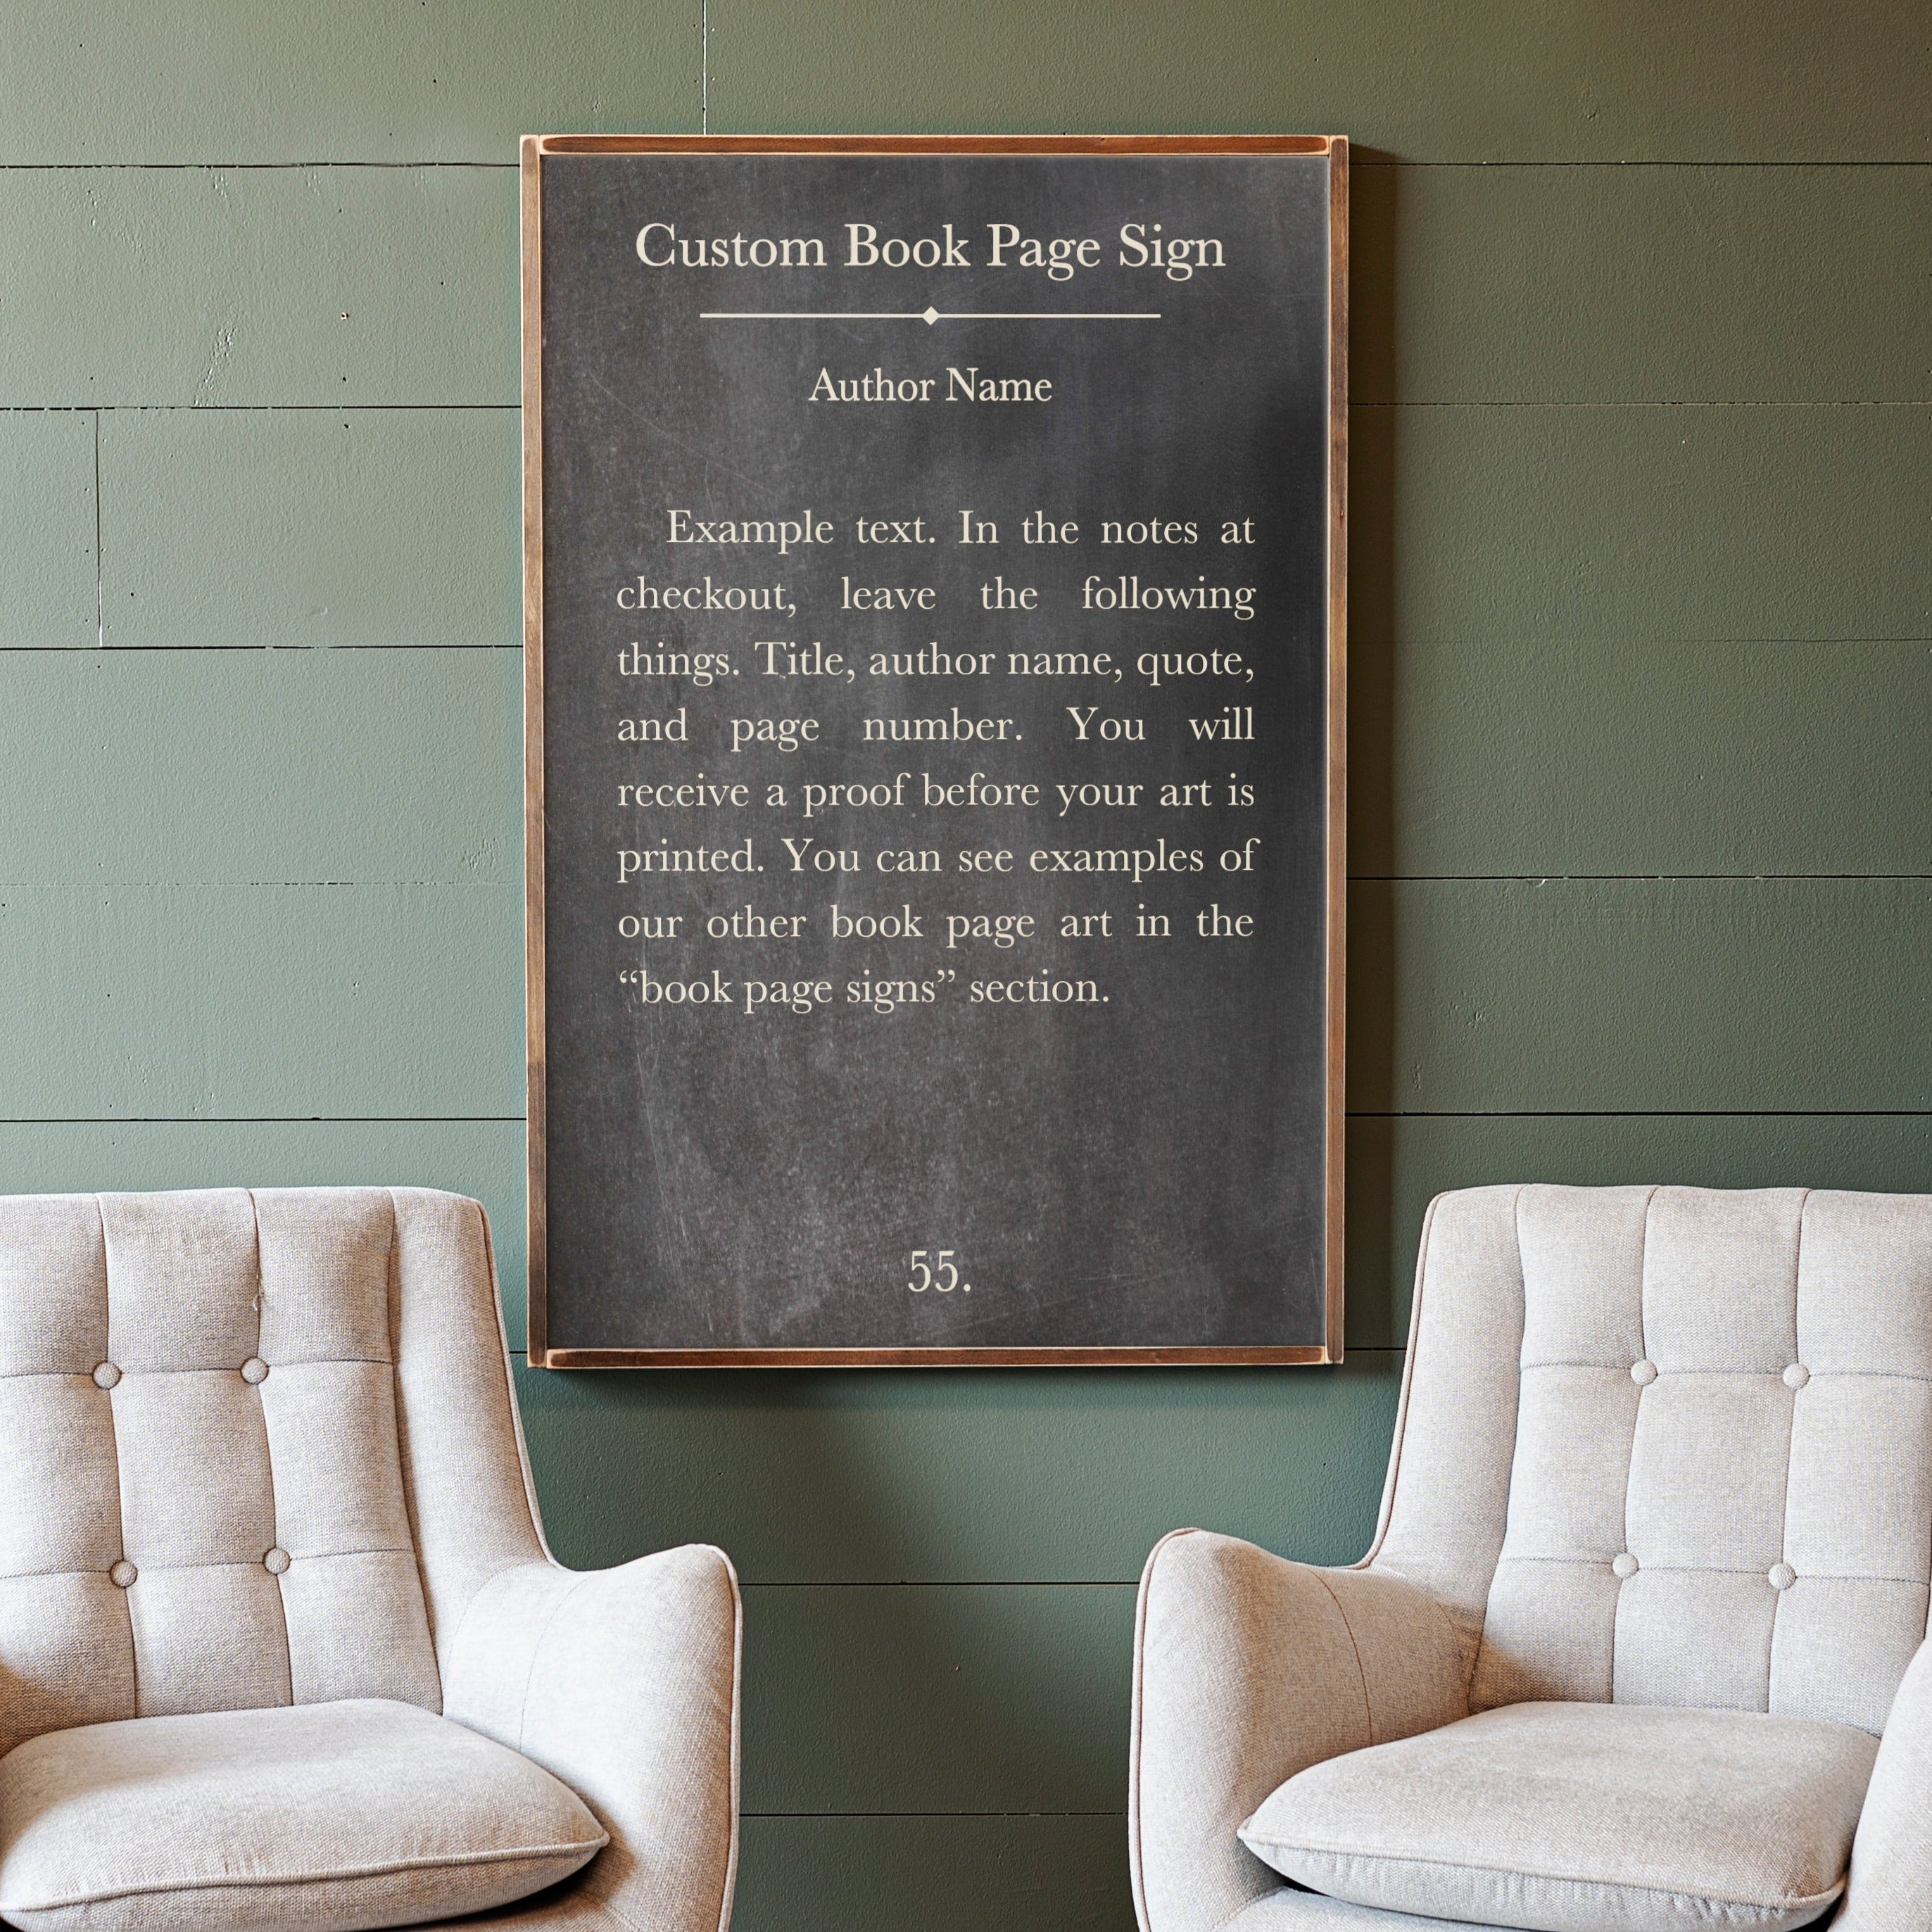 Custom Book Page Sign
Author Name
Example text. In the notes at
checkout, leave the following
things. Title, author name, quote,
and page number. You will
receive a proof before your art is
printed. You can see examples of
our other book page art in the
“book page signs” section.
55.